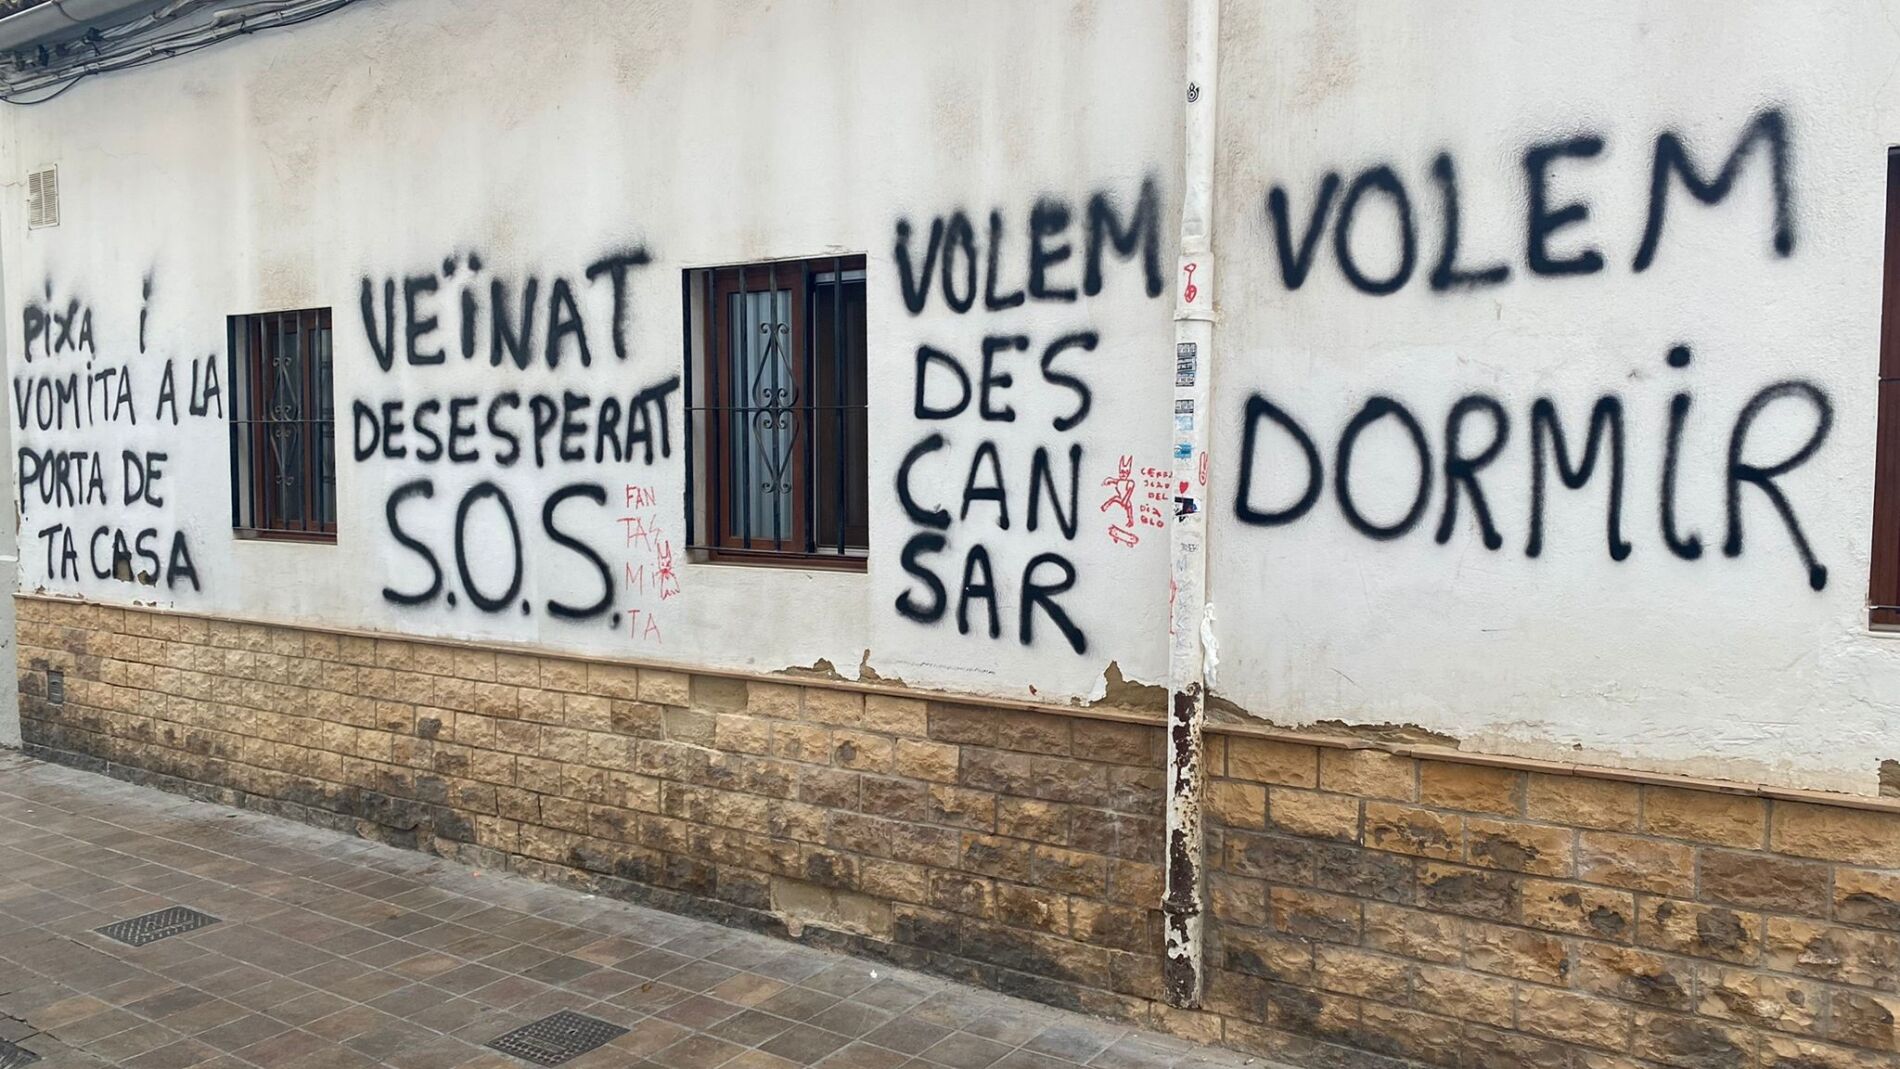 PiXA i
VOMiTA A LA
PORTA DE
TA CASA
VEÏNAT
DESESPERAT
S.O.S.
FAN
TAS
Mi
TA
VOLEM
DES
CAN
SAR
DEL
VOLEM
DORMiR